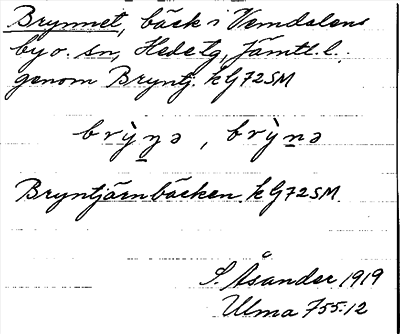 Brynnet, bäck i Vemdalens
by o. sn, Hede tg, Jämtl. l.
genom Bryntj. k G72SM
brỳn̲ə, brỳn̲ə
Bryntjärnbäcken. k G72SM.
S. Åsander 1919
Ulma 755:12